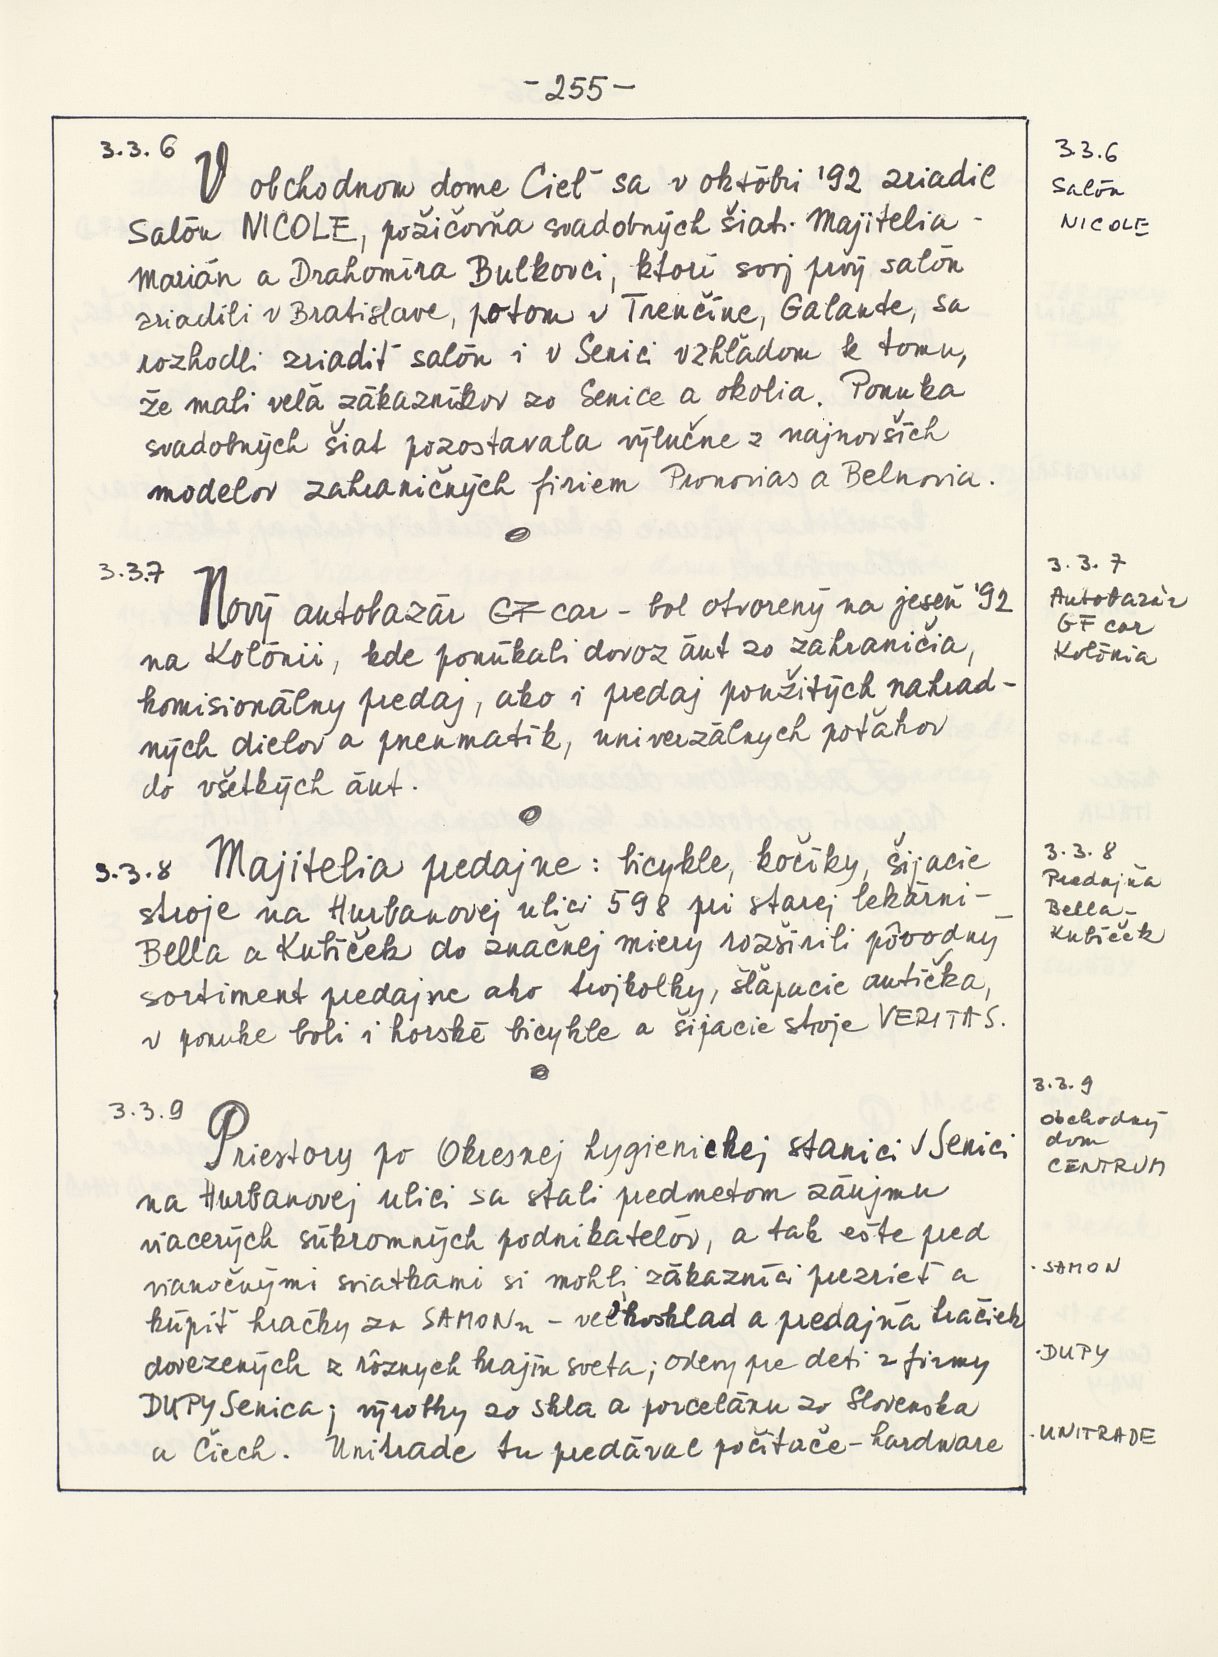 -255-
3.3.6 V obchodnom dome Cieľ sa v októbri '92 zriadil
Salón NICOLE, požičovňa svadobných šiat. Majitelia -
Marián a Drahomíra Bulkovci, ktorí svoj prvý salón
zriadili v Bratislave, potom v Trenčíne, Galante, sa
rozhodli zriadiť salón i v Senici vzhľadom k tomu,
že mali veľa zákazníkov zo Senice a okolia. Ponuka
svadobných šiat pozostavala výlučne z najnovších
modelov zahraničných firiem Pronovias a Belnovia.
3.3.6
Salón
NICOLE
3.3.7 Nový autobazár GF car - bol otvorený na jeseň '92
na Kolónii, kde ponúkali dovoz áut zo zahraničia,
komisionálny predaj, ako i predaj použitých nahrad-
ných dielov a pneumatík, univerzálnych poťahov
do všetkých áut.
3.3.7
Autobazár
GF car
Kolónia
3.3.8 Majitelia predajne: bicykle, kočíky, šijacie
stroje na Hurbanovej ulici 598 pri starej lekárni -
Bella a Kubíček do značnej miery rozšírili pôvodný
sortiment predajne ako trojkolky, šlapacie autíčka,
v ponuke boli i horské bicykle a šijacie stroje VERITAS.
3.3.8
Predajňa
Bella -
Kubíček
3.3.9 Priestory po Okresnej hygienickej stanici v Senici
na Hurbanovej ulici sa stali predmetom záujmu
viacerých súkromných podnikateľov, a tak ešte pred
vianočnými sviatkami si mohli zákazníci prezrieť a
kúpiť hračky zo SAMONu - veľkosklad a predajňa hračiek
dovezených z rôznych krajín sveta; odevy pre deti z firmy
DUPY Senica; výrobky zo skla a porcelánu zo Slovenska
a Čiech. Unitrade tu predával počítače - hardware
3.3.9
Obchodný
dom
CENTRUM
· SAMON
· DUPY
· UNITRADE